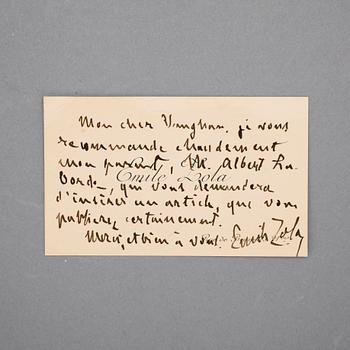 Mon cher Vaughan, je vous
recommande chaudement
mon parent, M. Albert La-
Emile Zola
borde, qui vous demandera
d'insérer un article, que vous
publierez certainement.
Merci, et bien à vous. Emile Zola